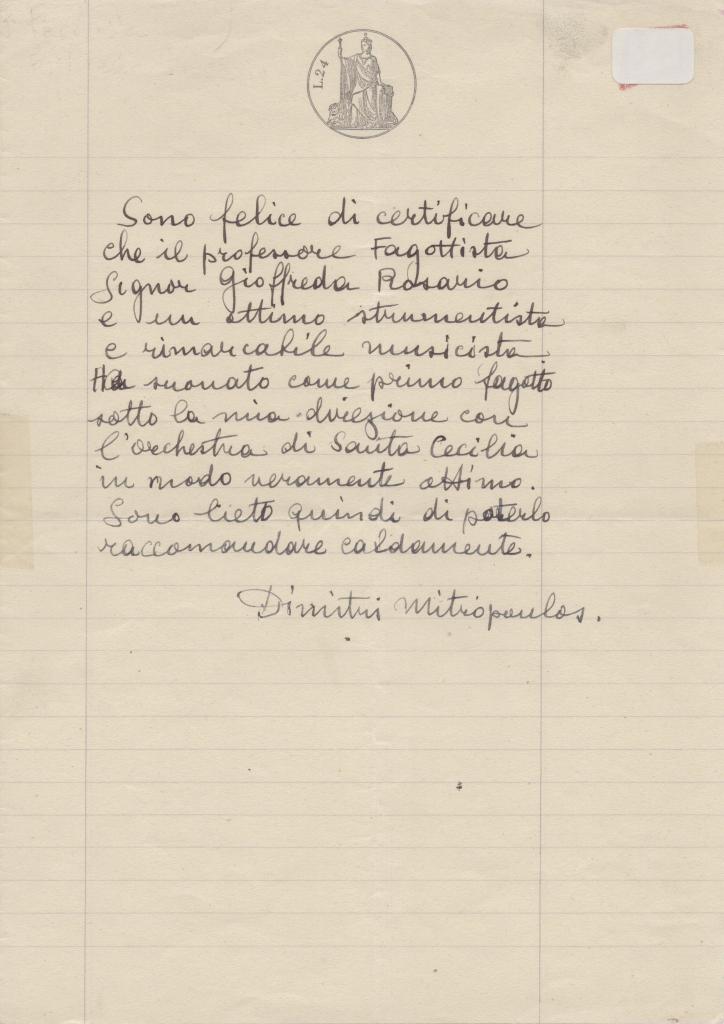 L.24
Sono felice di certificare
che il professore Fagottista
Signor Gioffreda Rosario
e un ottimo strumentista
e rimarcabile musicista.
Ha suonato come primo fagotto
sotto la mia direzione con
l'orchestra di Santa Cecilia
in modo veramente ottimo.
Sono lieto quindi di poterlo
raccomandare caldamente.
Dimitri Mitropoulos.